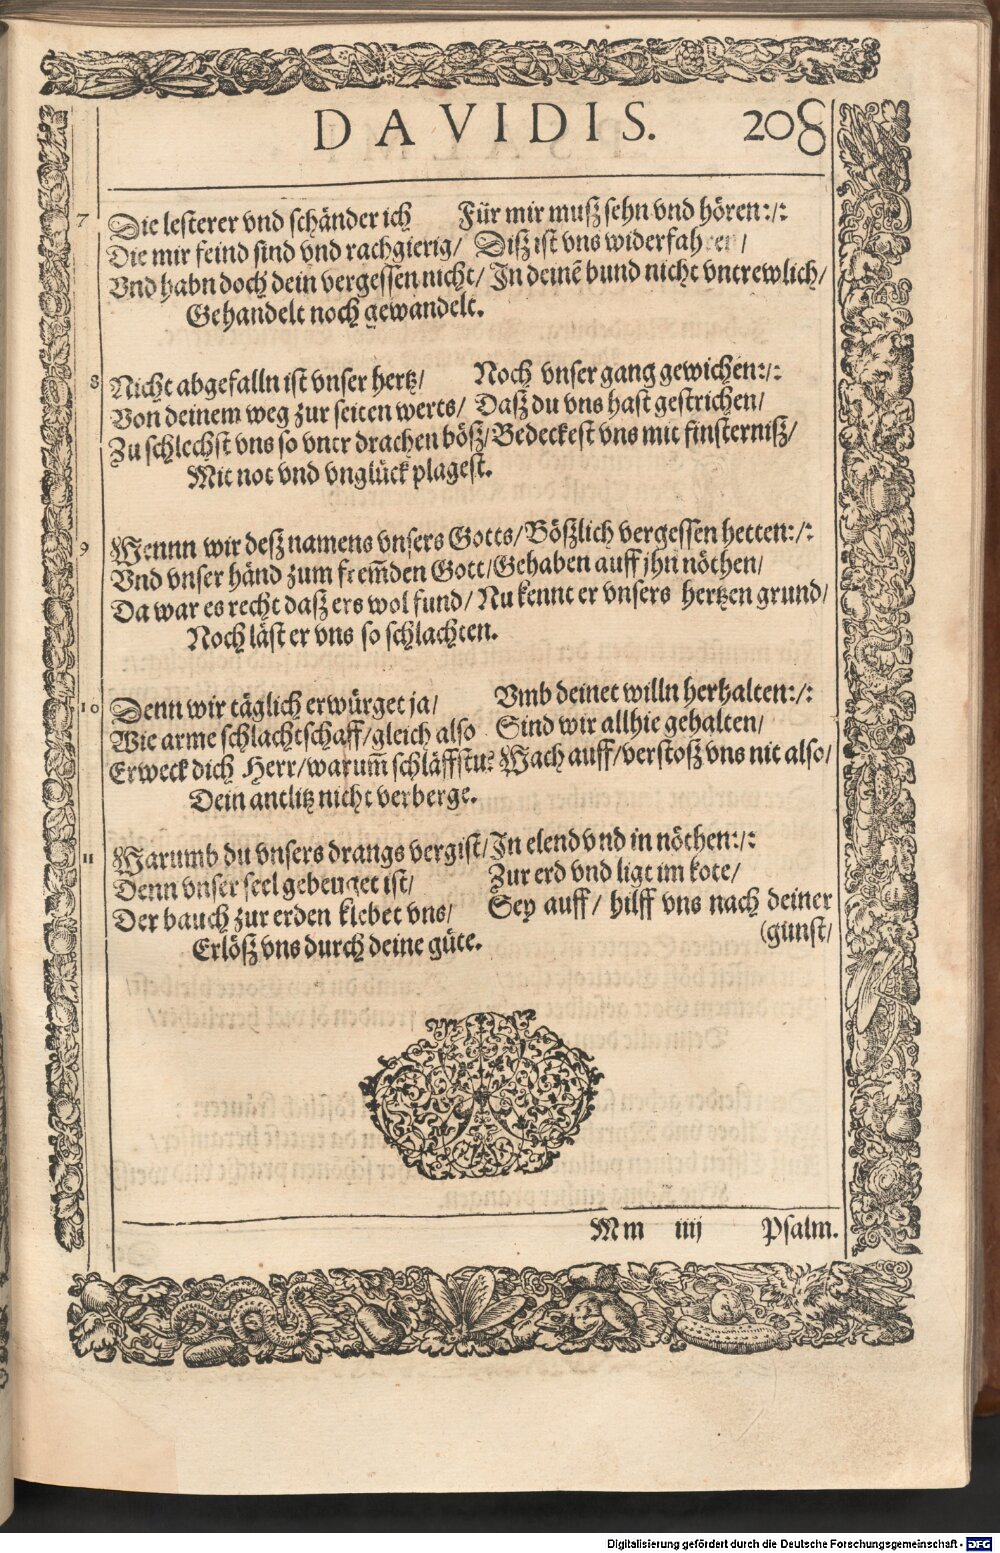 DAVIDIS. 208
7 Die lesterer vnd schänder ich Für mir muß sehn vnd hören:/:
Die mir feind sind vnd rachgierig/ Diß ist vns widerfahren/
Vnd habn doch dein vergessen nicht/ In deinē bund nicht vntrewlich/
Gehandelt noch gewandelt.
8 Nicht abgefalln ist vnser hertz/ Noch vnser gang gewichen:/:
Von deinem weg zur seiten werts/ Daß du vns hast gestrichen/
Zu schlechst vns so vntr drachen böß/ Bedeckest vns mit finsterniß/
Mit not vnd vnglück plagest.
9 Wennn wir deß namens vnsers Gotts/ Bößlich vergessen hetten:/:
Vnd vnser händ zum frem̄den Gott/ Gehaben auff jhn nöthen/
Da war es recht daß ers wol fund/ Nu kennt er vnsers hertzen grund/
Noch läst er vns so schlachten.
10 Denn wir täglich erwürget ja/ Vmb deinet willn herhalten:/:
Wie arme schlachtschaff/ gleich also Sind wir allhie gehalten/
Erweck dich Herr/ warum̄ schläffstu? Wach auff/ verstoß vns nit also/
Dein antlitz nicht verberge.
11 Warumb du vnsers drangs vergist/ In elend vnd in nöthen:/:
Denn vnser seel gebeuget ist/ Zur erd vnd ligt im kote/
Der bauch zur erden klebet vns/ Sey auff/ hilff vns nach deiner
Erlöß vns durch deine güte. (gunst/
Mm iiij Psalm.
Digitalisierung gefördert durch die Deutsche Forschungsgemeinschaft - DFG